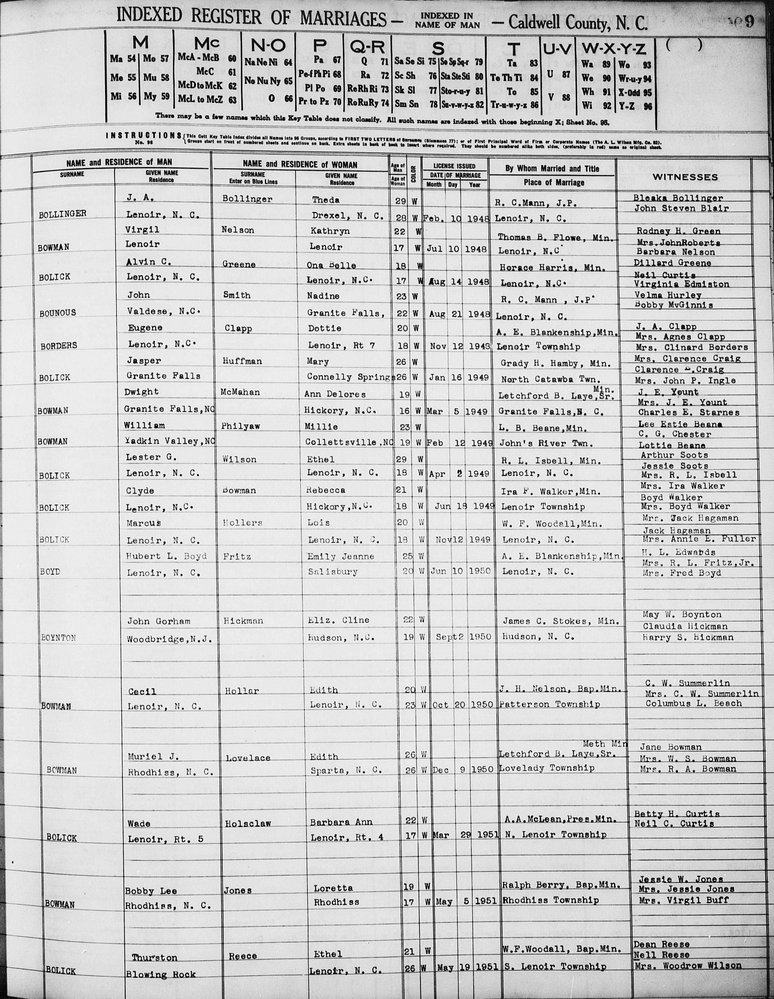 INDEXED REGISTER OF MARRIAGES — INDEXED IN NAME OF MAN — Caldwell County, N. C. 9
M Mc N-O P Q-R S T U-V W-X-Y-Z ( )
Ma 54 Mo 57 McA - McB 60 Na Ne Ni 64 Pa 67 Q 71 Sa Se Si 75 So Sp Sq-r 79 Ta 83 Wa 89 Wo 93
Me 55 Mu 58 McC 61 Pe-f Ph Pi 68 Ra 72 Sc Sh 76 Sta Ste Sti 80 Te Th Ti 84 U 87 We 90 Wr-u-y 94
McD to McK 62 No Nu Ny 65 Pl Po 69 Re Rh Ri 73 Sk Sl 77 Sto-r-u-y 81 To 85 Wh 91 X-Odd 95
Mi 56 My 59 McL to McZ 63 O 66 Pr to Pz 70 Ro Ru Ry 74 Sm Sn 78 Su-v-w-y-z 82 Tr-u-w-y-z 86 V 88 Wi 92 Y-Z 96
There may be a few names which this Key Table does not classify. All such names are indexed with those beginning X; Sheet No. 95.
INSTRUCTIONS
NAME and RESIDENCE OF MAN NAME and RESIDENCE OF WOMAN Age of Man COLOR LICENSE ISSUED By Whom Married and Title WITNESSES
SURNAME GIVEN NAME Residence SURNAME Enter on Blue Lines GIVEN NAME Residence Age of Woman DATE OF MARRIAGE Month Day Year Place of Marriage
J. A. Bollinger Theda 29 W R. C.Mann, J.P. Bleaka Bollinger
BOLLINGER Lenoir, N. C. Drexel, N. C. 28 W Feb. 10 1948 Lenoir, N. C. John Steven Blair
Virgil Nelson Kathryn 22 W Thomas B. Flowe, Min. Rodney H. Green
BOWMAN Lenoir Lenoir 17 W Jul 10 1948 Lenoir, N.C. Mrs.JohnRoberts
Barbara Nelson
Alvin C. Greene Ona Belle 18 W Horace Harris, Min. Dillard Greene
BOLICK Lenoir, N. C. Lenoir, N.C. 17 W Aug 14 1948 Lenoir, N.C. Neil Curtis
Virginia Edmiston
John Smith Nadine 23 W R. C. Mann , J.P. Velma Hurley
BOUNOUS Valdese, N.C. Granite Falls, 22 W Aug 21 1948 Lenoir, N. C. Bobby McGinnis
Eugene Clapp Dottie 20 W A. E. Blankenship,Min. J. A. Clapp
BORDERS Lenoir, N.C. Lenoir, Rt 7 18 W Nov 12 1948 Lenoir Township Mrs. Agnes Clapp
Mrs. Clinard Borders
Jasper Huffman Mary 26 W Grady H. Hamby, Min. Mrs. Clarence Craig
BOLICK Granite Falls Connelly Springs 26 W Jan 16 1949 North Catawba Twn. Clarence Craig
Mrs. John P. Ingle
Dwight McMahan Ann Delores 19 W Letchford B. Laye,Sr. Min. J. E. Yount
BOWMAN Granite Falls,NC Hickory, N.C. 16 W Mar 5 1949 Granite Falls,N. C. Mrs. J. E. Yount
Charles E. Starnes
William Philyaw Millie 23 W L. B. Beane,Min. Lee Estie Beane
BOWMAN Yadkin Valley,NC Collettsville,NC 19 W Feb 12 1949 John's River Twn. C. G. Chester
Lottie Beane
Lester G. Wilson Ethel 29 W R. L. Isbell, Min. Arthur Soots
BOLICK Lenoir, N. C. Lenoir, N. C. 18 W Apr 2 1949 Lenoir, N. C. Jessie Soots
Mrs. R. L. Isbell
Clyde Bowman Rebecca 21 W Ira F. Walker,Min. Mrs. Ira Walker
BOLICK Lenoir, N.C. Hickory,N.C. 18 W Jun 18 1949 Lenoir Township Boyd Walker
Mrs. Boyd Walker
Marcus Hollers Lois 20 W W. F. Woodall,Min. Mrs. Jack Hagaman
BOLICK Lenoir, N. C. Lenoir, N. C. 18 W Nov12 1949 Lenoir, N. C. Jack Hagaman
Mrs. Annie E. Fuller
Hubert L. Boyd Fritz Emily Jeanne 25 W A. E. Blankenship,Min. H. L. Edwards
BOYD Lenoir, N. C. Salisbury 20 W Jun 10 1950 Lenoir, N. C. Mrs. R. L. Fritz,Jr.
Mrs. Fred Boyd
John Gorham Hickman Eliz. Cline 22 W James C. Stokes, Min. May W. Boynton
BOYNTON Woodbridge,N.J. Hudson, N.C. 19 W Sept2 1950 Hudson, N. C. Claudia Hickman
Harry S. Hickman
Cecil Hollar Edith 20 W J. H. Nelson, Bap.Min. C. W. Summerlin
BOWMAN Lenoir, N. C. Lenoir, N. C. 23 W Oct 20 1950 Patterson Township Mrs. C. W. Summerlin
Columbus L. Beach
Muriel J. Lovelace Edith 26 W Letchford B. Laye,Sr. Meth Min Jane Bowman
BOWMAN Rhodhiss, N. C. Sparta, N. C. 26 W Dec 9 1950 Lovelady Township Mrs. W. S. Bowman
Mrs. R. A. Bowman
Wade Holsclaw Barbara Ann 22 W A.A.McLean,Pres.Min. Betty H. Curtis
BOLICK Lenoir, Rt. 5 Lenoir, Rt. 4 17 W Mar 29 1951 N. Lenoir Township Neil C. Curtis
Bobby Lee Jones Loretta 19 W Ralph Berry, Bap.Min. Jessie W. Jones
BOWMAN Rhodhiss, N. C. Rhodhiss 17 W May 5 1951 Rhodhiss Township Mrs. Jessie Jones
Mrs. Virgil Buff
Thurston Reece Ethel 21 W W.F.Woodall, Bap.Min. Dean Reese
BOLICK Blowing Rock Lenoir, N. C. 26 W May 19 1951 S. Lenoir Township Nell Reese
Mrs. Woodrow Wilson